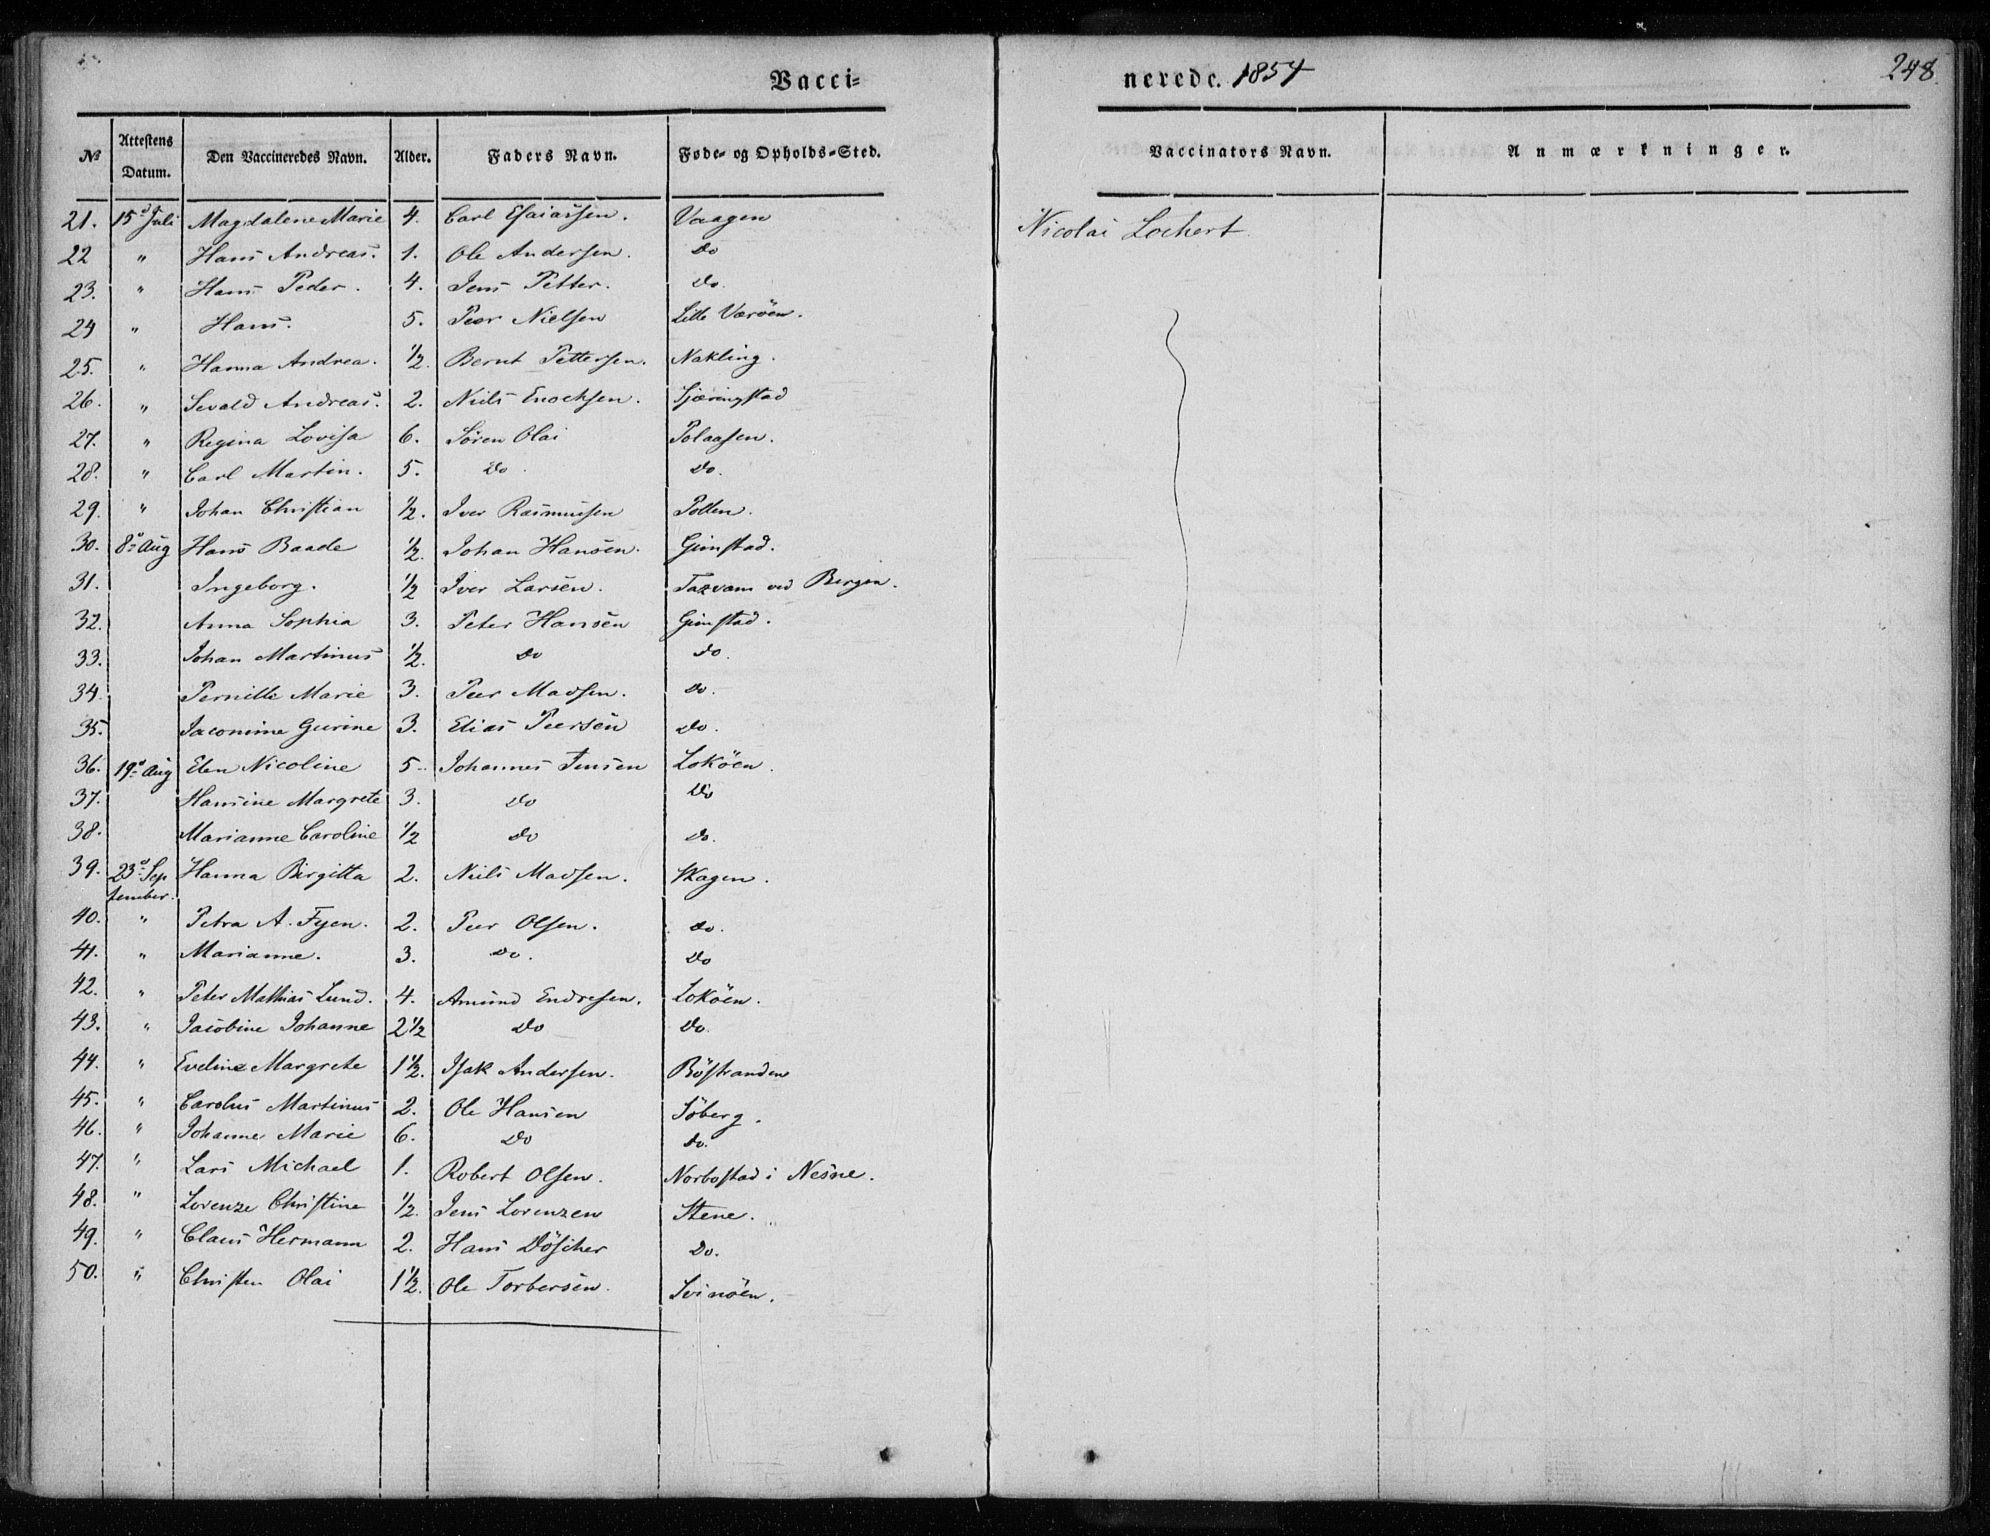 Vacci= nerede. 1854 248.
№ Attestens Datum. Den Vaccineredes Navn. Alder. Faders Navn. Føde- og Opholds-Sted. Vaccinators Navn. Anmærkninger.
21. 15d Juli Magdalene Marie 4. Carl Esaiassen. Vaagen Nicolai Lochert
22 " Hans Andreas. 1. Ole Andersen. Do
23. " Hans Peder. 4. Jens Petter. Do.
24 " Hans. 5. Peer Nielsen Lille Værøen.
25. " Hanna Andrea. 1/2. Bernt Pettersen. Nakling.
26. " Sevald Andreas. 2. Niels Enochsen. Sjæringstad
27. " Regina Lovisa 6. Søren Olai Polaasen.
28. " Carl Martin. 5. Do. Do.
29. " Johan Christian 1/2. Iver Rasmussen Pollen.
30. 8de Aug Hans Baade 1/2. Johan Hansen. Gimstad.
31. Ingeborg. 1/2 Iver Larsen. ved Bergen.
32. Anna Sophia 3. Peter Hansen Gimstad.
33. Johan Martinus 1/2. Do do.
34. Pernille Marie 3. Peer Madsen. do.
35. Jaconime Gurine 3. Elias Peersen Do.
36. 19de Aug Elen Nicoline 5. Johannes Jensen Lokøen.
37. Hansine Margrete 3. Do Do
38. Marianne Caroline 1/2 Do do.
39. 23d Sep Hanna Birgitta 2. Niels Madsen. Skagen.
tember.
40. " Petra A. Fyen. 2. Peer Olsen. do.
41. " Marianne. 3. Do. Do
42. " Peter Mathias Lund. 4. Amund Endresen. Lokøen.
43. " Jacobine Johanne 2 1/2 Do Do.
44. " Eveline Margrete 1 1/2. Isak Andersen. Bøstranden
45. " Carolus Martinus 2. Ole Hansen Søberg.
46. " Johanne Marie 6. Do do.
47. " Lars Michael 1. Robert Olsen. Norbostad i Nesne.
48. " Lorenze Christine 1/2. Jens Lorenzen Stene.
49. " Claus Hermann 2. Hans Døscher Do.
50. " Christen Olai 1 1/2. Ole Torbersen. Svinøen.